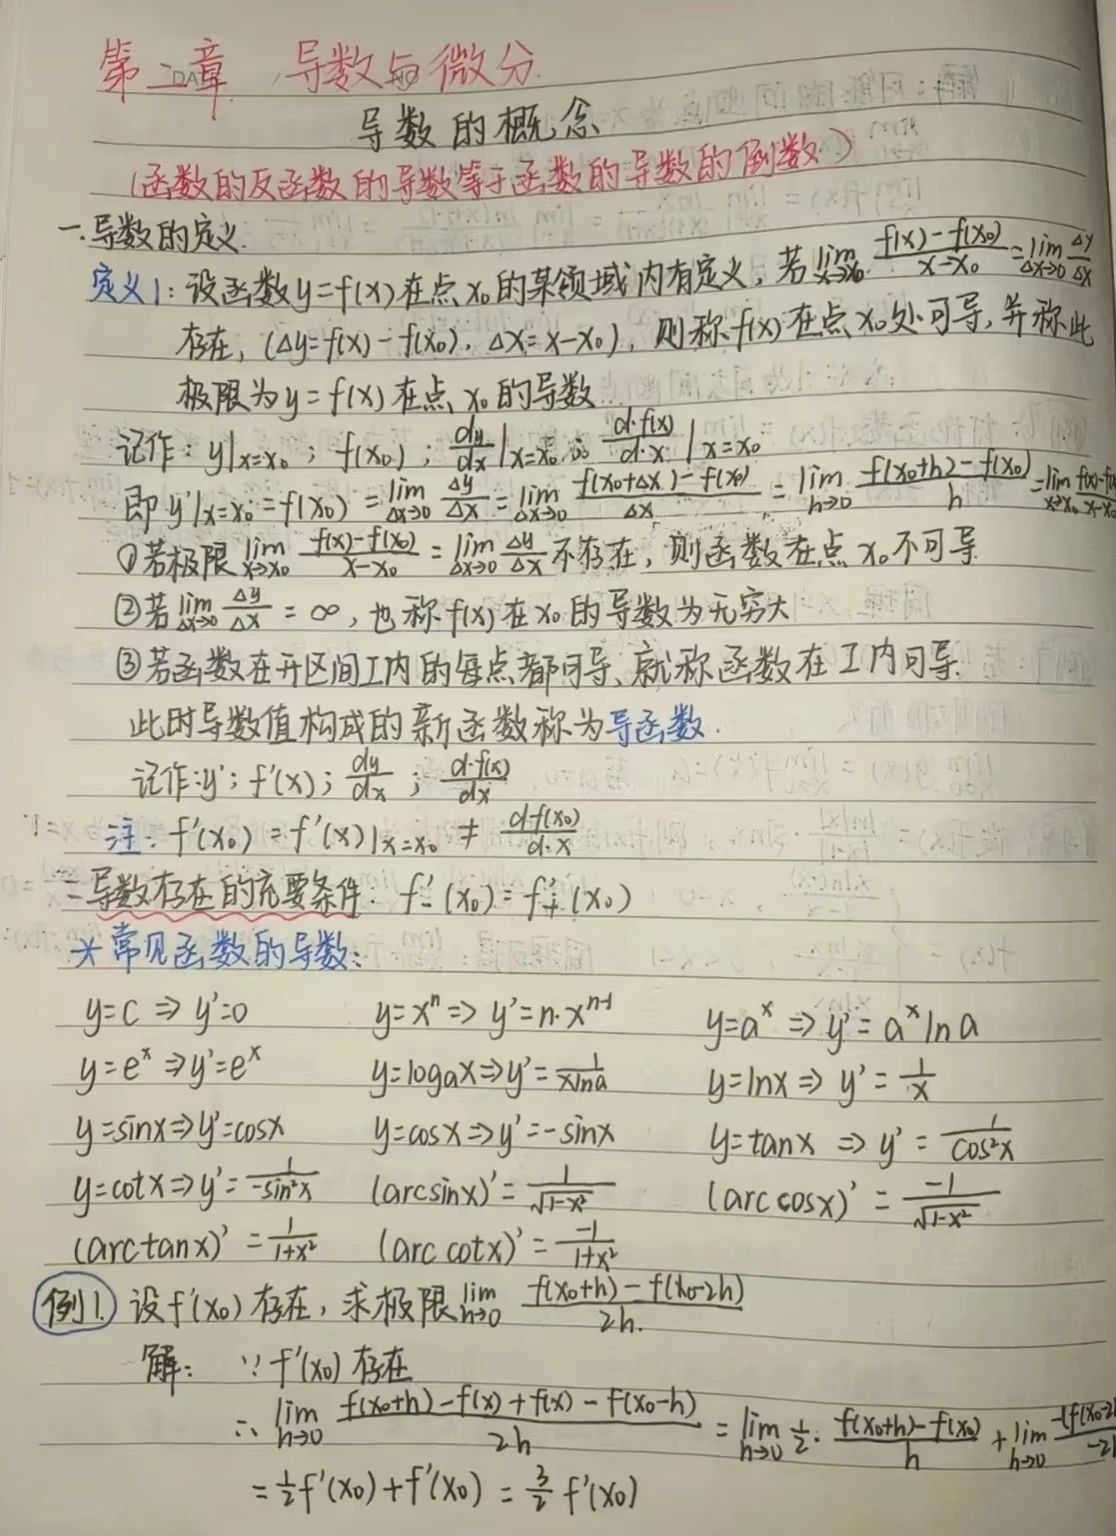 第二章 导数与微分
导数的概念
(函数的反函数的导数等于函数的导数的倒数)
一.导数的定义.
定义1:设函数y=f(x)在点x₀的某领域内有定义,若lim x→x₀ (f(x)-f(x₀))/(x-x₀)=lim Δx→0 Δy/Δx
存在,(Δy=f(x)-f(x₀),Δx=x-x₀),则称f(x)在点x₀处可导,并称此
极限为y=f(x)在点x₀的导数
记作:y|x=x₀;f(x₀);dy/dx|x=x₀;d·f(x)/d·x|x=x₀
即y'|x=x₀=f(x₀)=lim Δx→0 Δy/Δx=lim Δx→0 (f(x₀+Δx)-f(x₀))/Δx=lim h→0 (f(x₀+h)-f(x₀))/h=lim x→x₀
①若极限lim x→x₀ (f(x)-f(x₀))/(x-x₀)=lim Δx→0 Δy/Δx不存在,则函数在点x₀不可导
②若lim Δx→0 Δy/Δx=∞,也称f(x)在x₀的导数为无穷大
③若函数在开区间I内的每点都可导、就称函数在I内可导.
此时导数值构成的新函数称为导函数.
记作:y';f'(x);dy/dx;d·f(x)/dx
注:f'(x₀)=f'(x)|x=x₀≠d·f(x₀)/d·x
二导数存在的充要条件:f'₋(x₀)=f'₊(x₀)
*常见函数的导数:
y=c⇒y'=0 y=xⁿ⇒y'=n·xⁿ⁻¹ y=aˣ⇒y'=aˣlna
y=eˣ⇒y'=eˣ y=logax⇒y'=1/(xlna) y=lnx⇒y'=1/x
y=sinx⇒y'=cosx y=cosx⇒y'=-sinx y=tanx⇒y'=1/cos²x
y=cotx⇒y'=1/-sin²x (arcsinx)'=1/√(1-x²) (arccosx)'=-1/√(1-x²)
(arctanx)'=1/(1+x²) (arccotx)'=-1/(1+x²)
例1.设f'(x₀)存在,求极限lim h→0 (f(x₀+h)-f(x₀-2h))/2h.
解:∵f'(x₀)存在
∴lim h→0 (f(x₀+h)-f(x)+f(x)-f(x₀-h))/2h=lim h→0 1/2·(f(x₀+h)-f(x₀))/h+lim h→0
=1/2f'(x₀)+f'(x₀)=3/2f'(x₀)